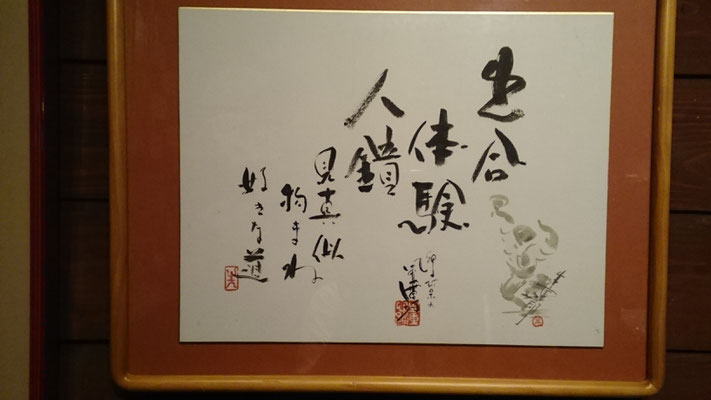 出合
体験
人鑑
見真似
物まね
好きな道